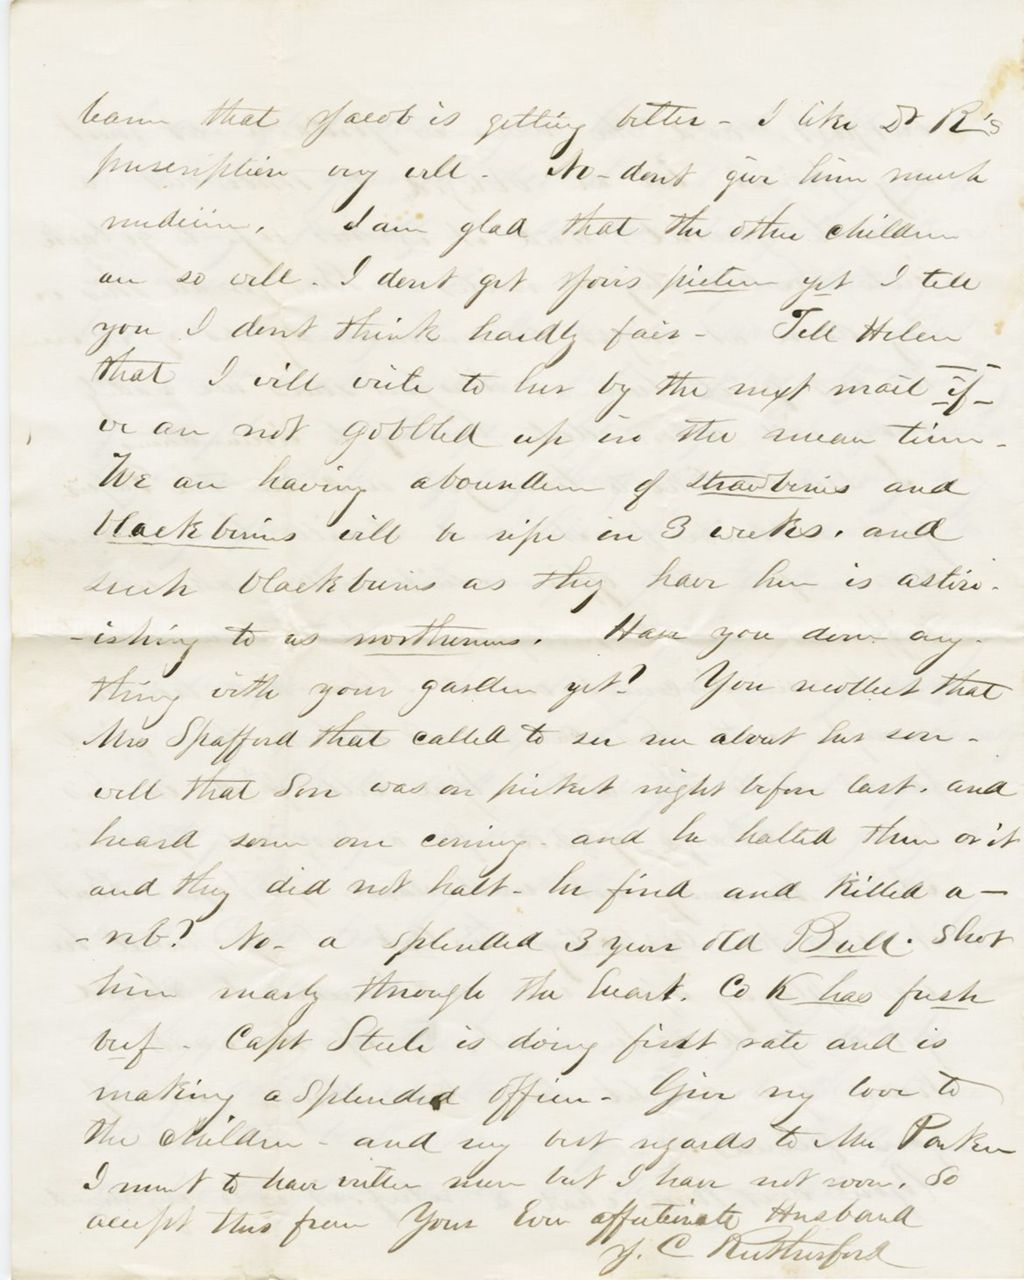 learn that Jacob is getting better - I like Dr R's
prescription very well - No - dont give him much
medicine. I am glad that the other children
are so well. I dont get Yours picture yet I tell
you I dont think hardly fair - Tell Helen
that I will write to her by the next mail if -
we are not gobbled up in the mean time -
We are having aboundence of strawberries and
blackberries will be ripe in 3 weeks. and
such blackberries as they have here is aston-
-ishing to us northerners. Have you done any-
thing with your garden yet? You recollect that
Mrs Spafford that called to see me about her son -
well that Son was on picket night before last. and
heard some one coming - and he halted them or it
and they did not halt - he fired and killed a -
- reb? No - a splended 3 year old Bull. Shot
him nearly through the heart. Co K has fresh
beef - Capt Steele is doing first rate and is
making a splended officer - Give my love to
the children - and my best regards to Mr Parker
I ment to have written more but I have not room. So
accept this from Your Ever affectinate Husband
J. C. Rutherford